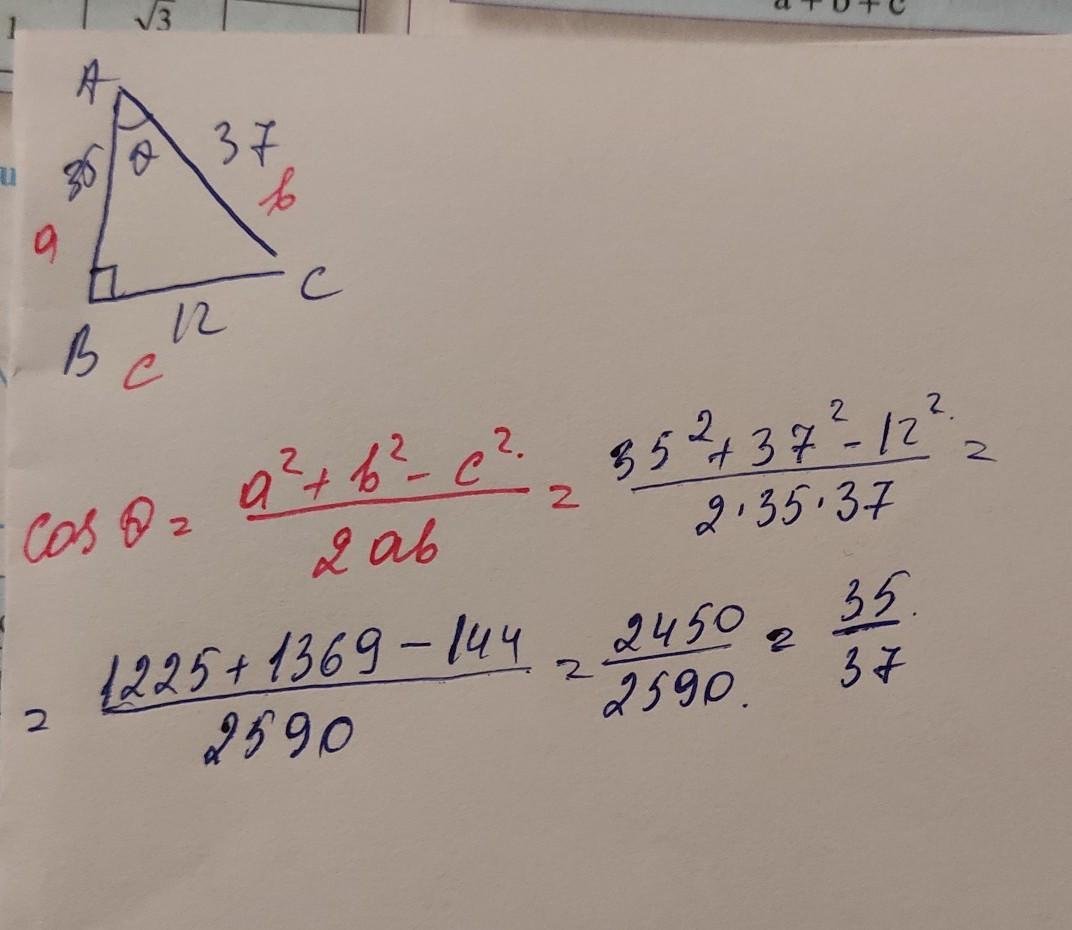 1 √3
a + b + c
A
35 θ 37
a b
B C
c 12
cos θ = (a² + b² - c²)/(2ab) = (35² + 37² - 12²)/(2·35·37) =
= (1225 + 1369 - 144)/2590 = 2450/2590. = 35/37